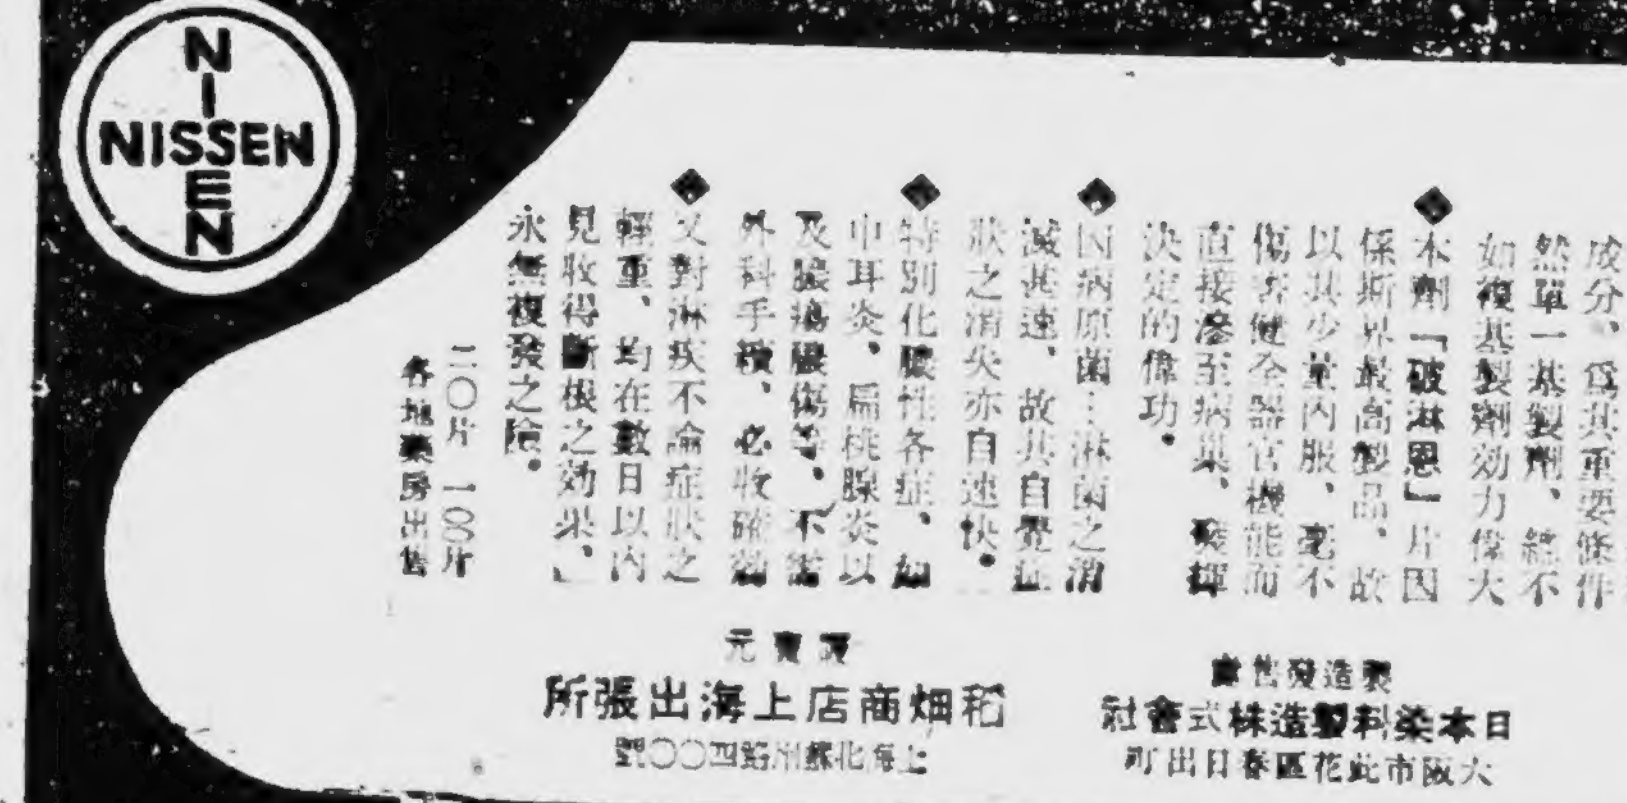 成分、爲其重要條件
然單一基製劑、總不
如複基製劑効力偉大
◆本劑「破淋恩」片因
係斯界最高製品、故
以其少量內服、毫不
傷害健全器官機能而
直接滲至病巢、發揮
決定的偉功。
◆因病原菌…淋菌之消
滅甚速、故其自覺症
狀之消失亦自速快。
◆特別化膿性各症、如
中耳炎、扁桃腺炎以
及膿瘍膿傷等、不需
外科手續、必收確効
◆又對淋疾不論症狀之
輕重、均在數日以內
見收得斷根之効果、
永無複發之險。
二〇片 一〇〇片
各地藥房出售
製造發售
日本染料製造株式會社
大阪市此花區春日出町
元賣
稻畑商店上海出張所
上海北蘇州路四〇〇號
NISSEN
NISSEN